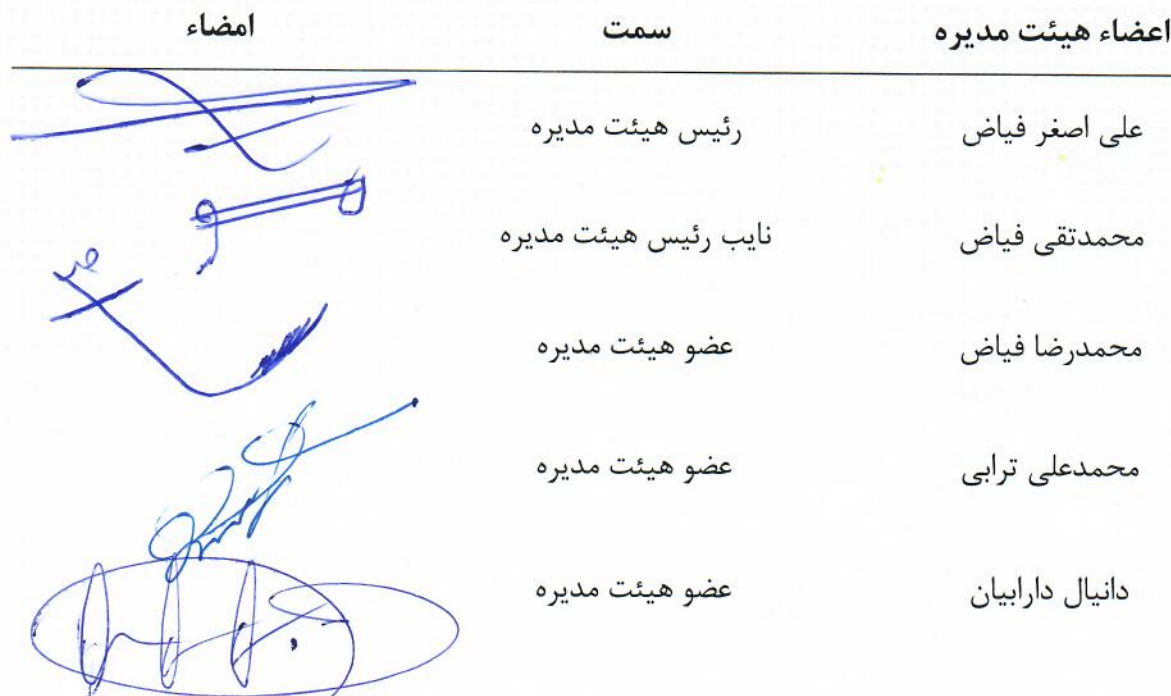 اعضاء هیئت مدیره سمت امضاء
علی اصغر فیاض رئیس هیئت مدیره
محمدتقی فیاض نایب رئیس هیئت مدیره
محمدرضا فیاض عضو هیئت مدیره
محمدعلی ترابی عضو هیئت مدیره
دانیال دارابیان عضو هیئت مدیره